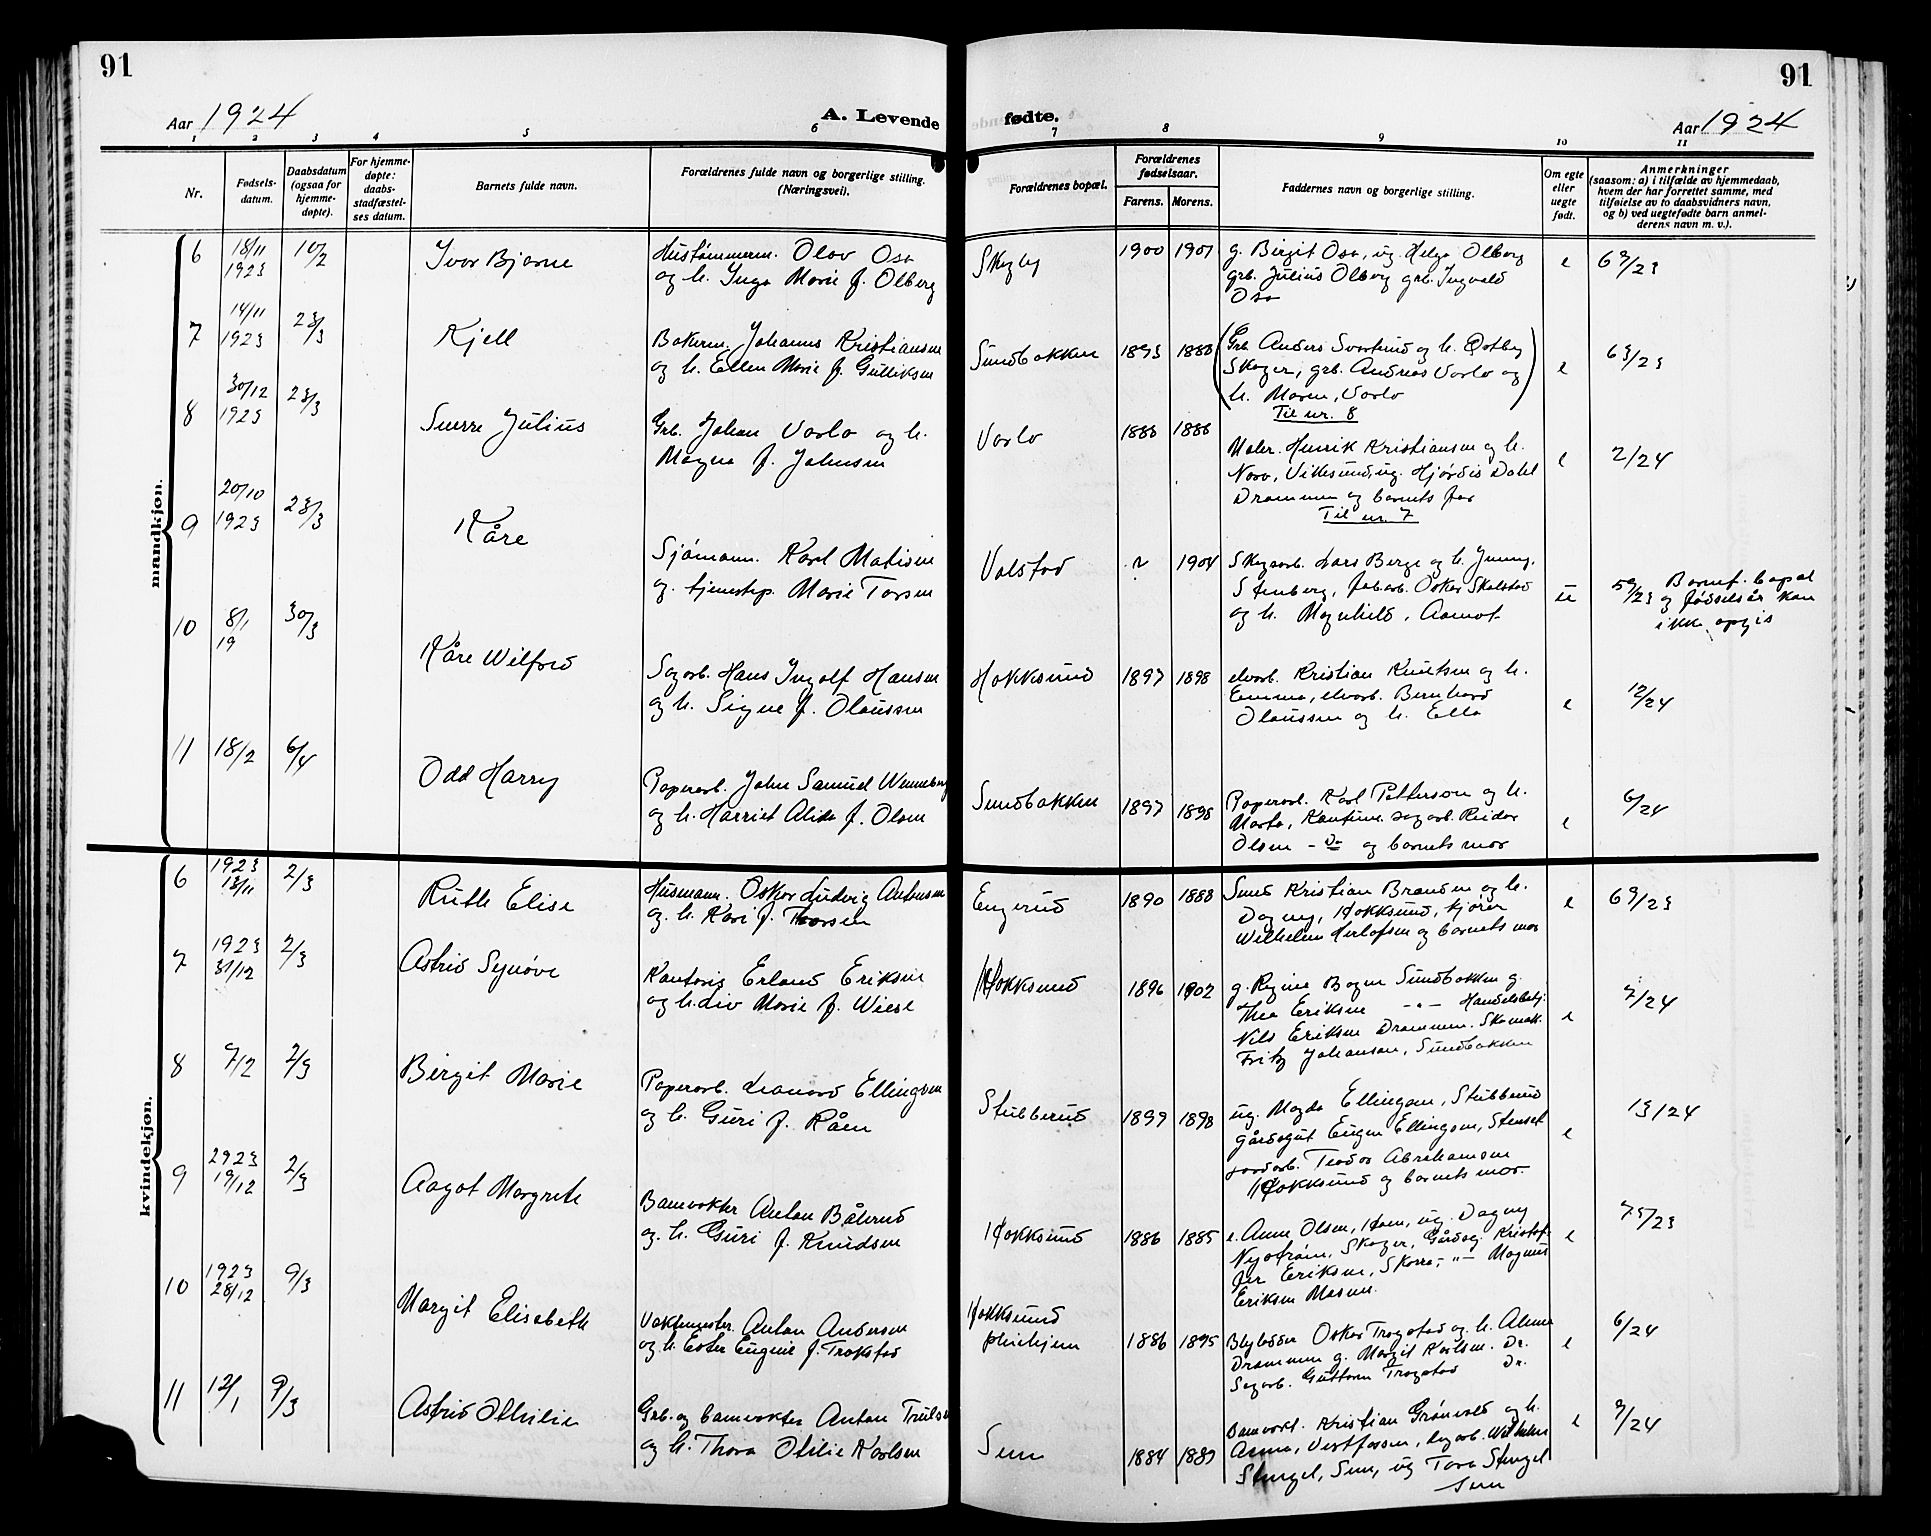 91
91
Aar 1924
A. Levende fødte.
Aar 1924
1 2 3 4 5 6 7 8 9 10 11
Nr.
Fødsels-
datum.
Daabsdatum
(ogsaa for
hjemme-
døpte).
For hjemme-
døpte:
daabs-
stadfæstel-
ses datum.
Barnets fulde navn.
Forældrenes fulde navn og borgerlige stilling.
(Næringsvei).
Forældrenes bopæl.
Forældrenes
fødselsaar.
Farens. Morens.
Faddernes navn og borgerlige stilling.
Om egte
eller
uegte
født.
Anmerkninger
(saasom: a) i tilfælde av hjemmedaab,
hvem der har forrettet samme, med
tilføielse av to daabsvidners navn,
og b) ved uegtefødte barn anmel-
derens navn m. v.).
mandkjøn.
6 18/11 1923 10/2 Ivar Bjarne
Hustømmerm. Olav Osa
og h. Inga Marie f. Olberg
Skygby? 1900 1901
g. Birgit Osa, ug. Helga Olberg
grb. Julius Olberg grb. Ingvald
Osa
e 69/23
7 14/11 1923 23/3 Kjell
Bakerm. Johannes Kristiansen
og h. Ellen Marie f. Gulliksen
Sundbakken 1893 1888
(Grb. Anders Svartrud og h. Østby
Skoger, grb. Andreas Varlo og
h. Maren, Varlo)
Til nr. 8
e 63/23
8 30/12 1923 23/3 Sverre Julius
Grb. Johan Varlo og h.
Magna f. Johnsen
Varlo 1883 1886
Maler. Henrik Kristiansen og h.
Nora, Vikesund, ug. Hjørdis Dahl
Drammen og barnets far
Til nr. 7
e 2/24
9 20/10 1923 23/3 Kåre
Sjömann. Karl Matisen
og tjenestep. Marie Torsen
Valstad ? 1904
Skogarb. Lars Berge og h. Jenny,
Stenberg, fabarb. Oskar Skalstad
og h. Magnhild, Aamot
u 59/23 Barnef. bopæl
og fødselsår kan
ikke opgis
10 8/1 19 30/3 Kåre Wilfred
Sagarb. Hans Ingolf Hansen
og h. Signe f. Olaussen
Hokksund 1897 1898
elvarb. Kristian Knutsen og h.
Emma, elvarb. Bernhard
Olaussen og h. Ella
e 12/24
11 18/2 6/4 Odd Harry
Papirarb. John Samuel Wenneberg
og h. Harriet Alida f. Olsen
Sundbakken 1897 1898
Papirarb. Karl Petterson og h.
Marta, sagarb. Reidar
Olsen - Do og barnets mor
e 6/24
kvindekjøn.
6 1923 13/11 2/3 Ruth Elise
Husmann. Oskar Ludvig Antonsen
og h. Kari f. Thorsen
Engerud 1890 1888
Smed Kristian Branden og h.
Dagny, Hokksund, kjører
Wilhelm Herlofsen og barnets mor
e 69/23
7 1923 31/12 2/3 Astrid Synøve
Kantorist Erland Eriksen
og h. Liv Marie f. Wiese
Hokksund 1896 1902
g. Regine Bogen Sundbakken g.
Thea Eriksen - " - Handelsbetj.
Nils Eriksen Drammen. Skomak.
Fritz Johansen, Sundbakken
e 7/24
8 9/2 2/3 Birgit Marie
Papirarb. Leonard Ellingsen
og h. Guri f. Råen
Stubberud 1899 1898
ug. Magda Ellingsen, Stubberud
gårdsgut Eugen Ellingsen, Stenset
jordarb. Teodor Abrahamsen
Hokksund og barnets mor
e 13/24
9 2923 19/12 2/3 Aagot Margrete
Banevokter Anton Båserud
og h. Guri f. Knudsen
Hokksund 1886 1885
e. Anne Olsen, Horn, ug. Dagny
Nystrøm, Skoger, Gårdbg. Kristof-
fer Eriksen, Skorra, - " - Magnus
Eriksen Masen.
e 75/23
10 1923 28/12 9/3 Margit Elisabeth
Vaktmester. Anton Andersen
og h. Ester Eugenie f. Trokstad
Hokksund
pleiehjem 1886 1895
Oskar Trogstad og h. Alma
Drammen g. Margit Karlsen. Dr.
Sagarb. Guttorm Trogstad Dr.
e 6/24
11 12/1 9/3 Astrid Othilie
Grb. og banevokter Anton Trulsen
og h. Thora Otilie Karlsen
Sem 1884 1889
Banevokt. Kristian Grønvold og h.
Anna, Vestfossen, dagarb. Wilhelm
Stengel, Sem, ug Tora Stengel
Sem
e 9/24